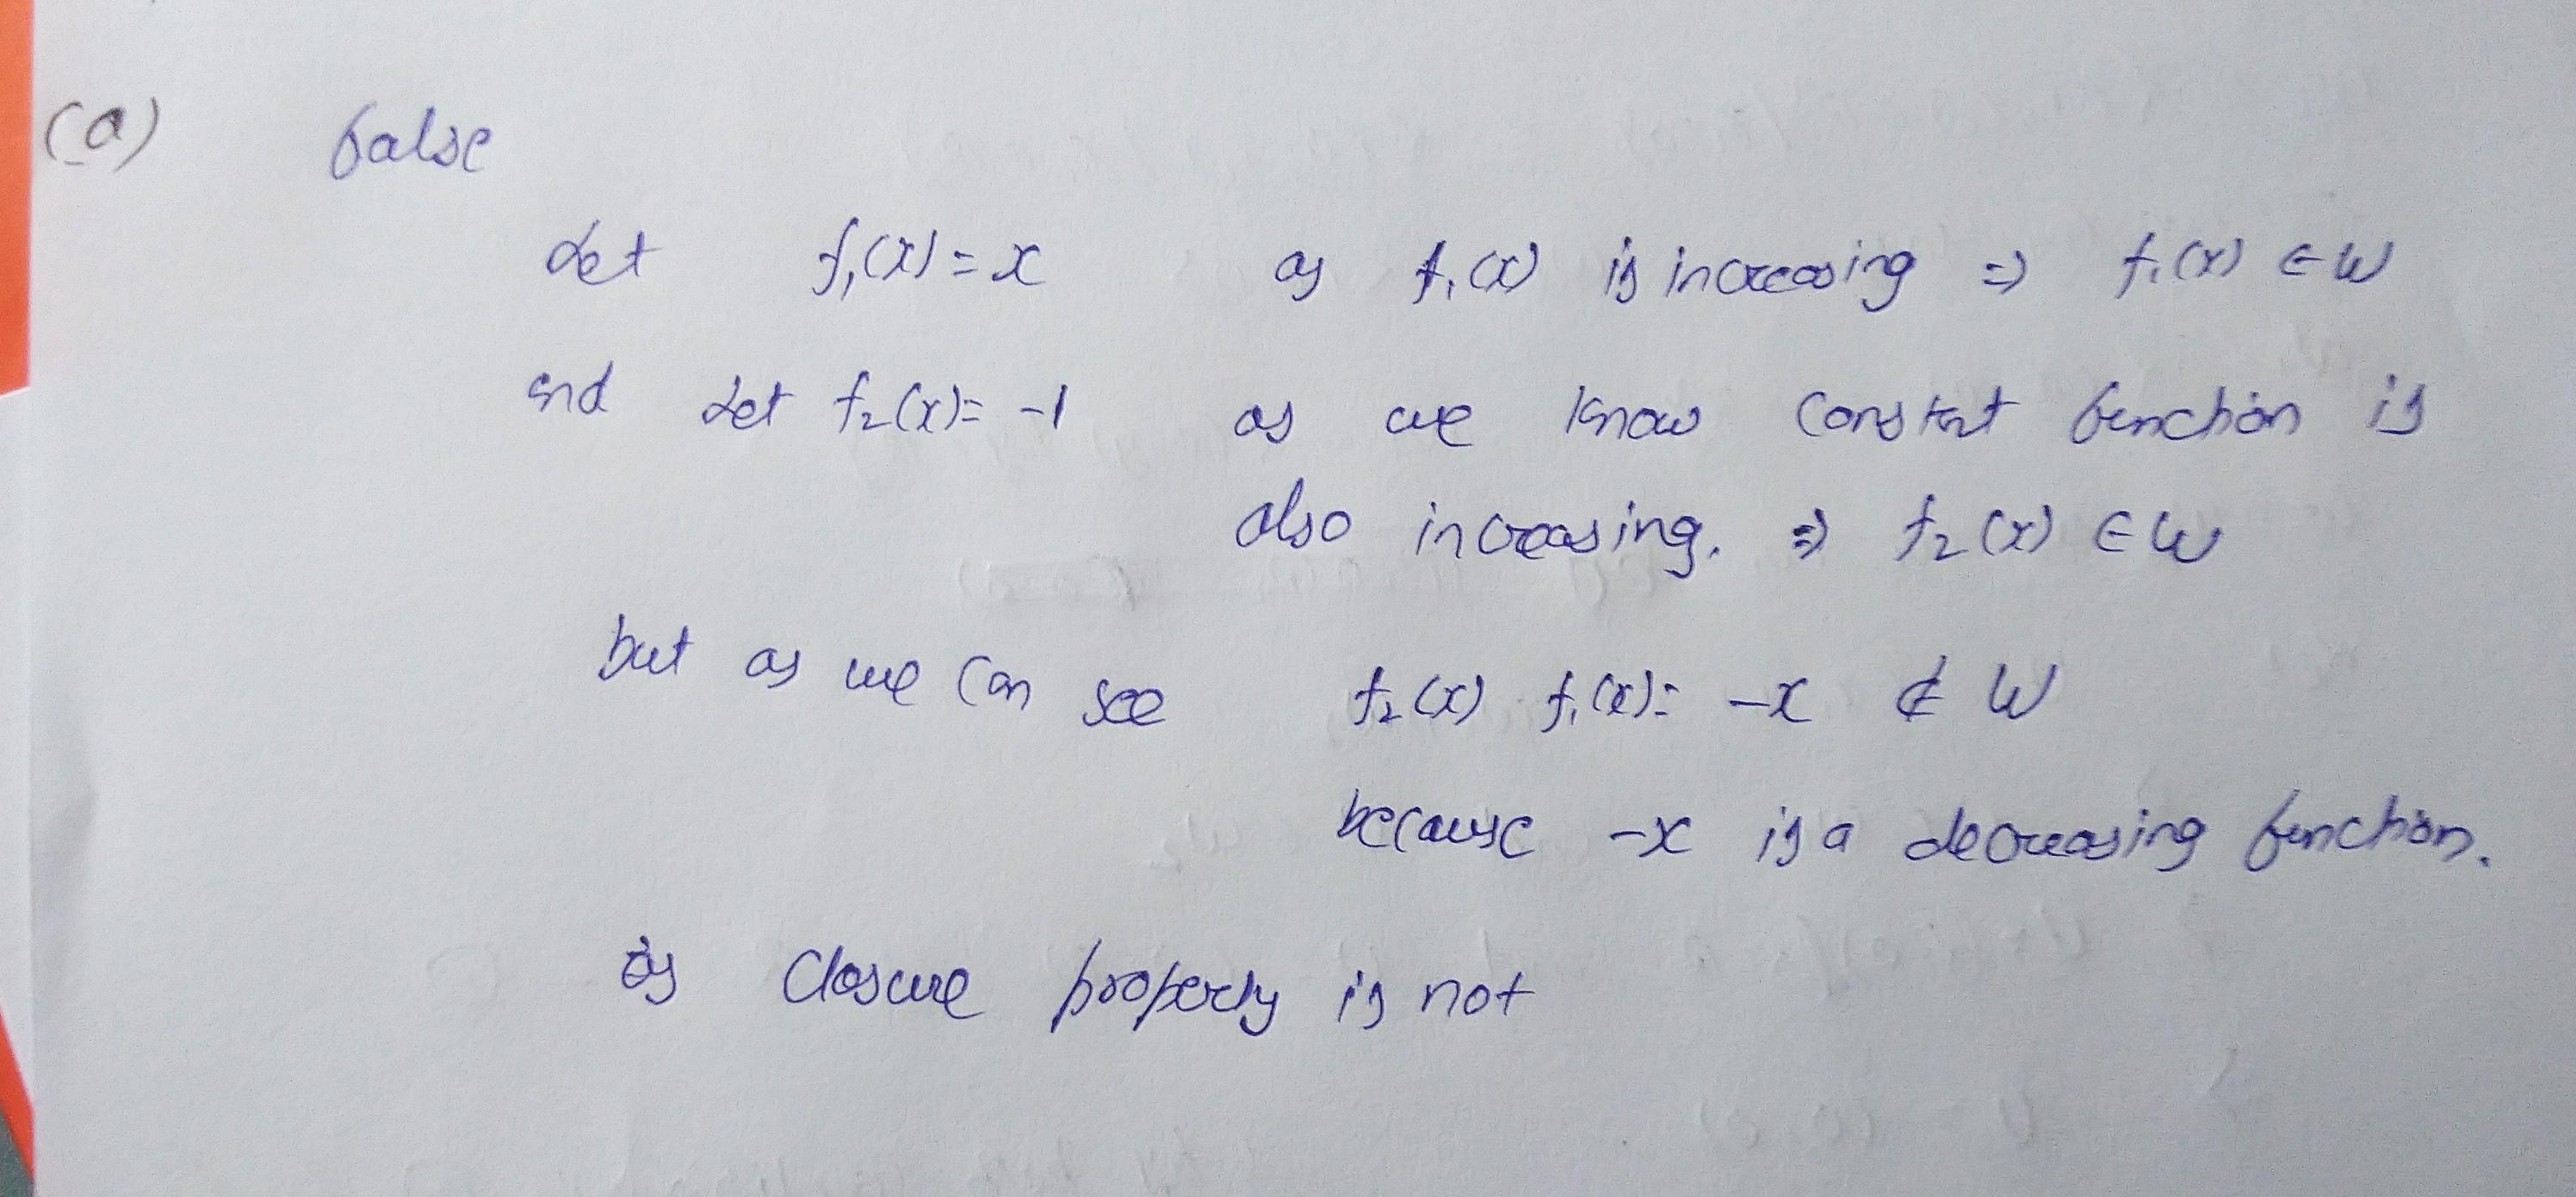 (a) false
Let f₁(x) = x as f₁(x) is increasing ⇒ f₁(x) ∈ W
and Let f₂(x) = -1 as we know constant function is
also increasing. ⇒ f₂(x) ∈ W
but as we can see f₂(x) f₁(x) = -x ∉ W
because -x is a decreasing function.
as Closure property is not